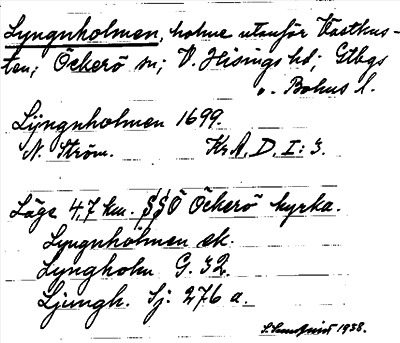 Lyngnholmen, holme utanför Västkus-
ten; Öckerö sn; V. Hisings hd; Gtbgs
o. Bohus l.
Lÿngnholmen 1699.
N. Ström. KrA. D. I: 3.
Läge 4,7 km. SSÖ Öckerö kyrka.
Lyngnholmen ek.
Lyngholm G. 32.
Ljungh. Sj: 276 a.
1938.